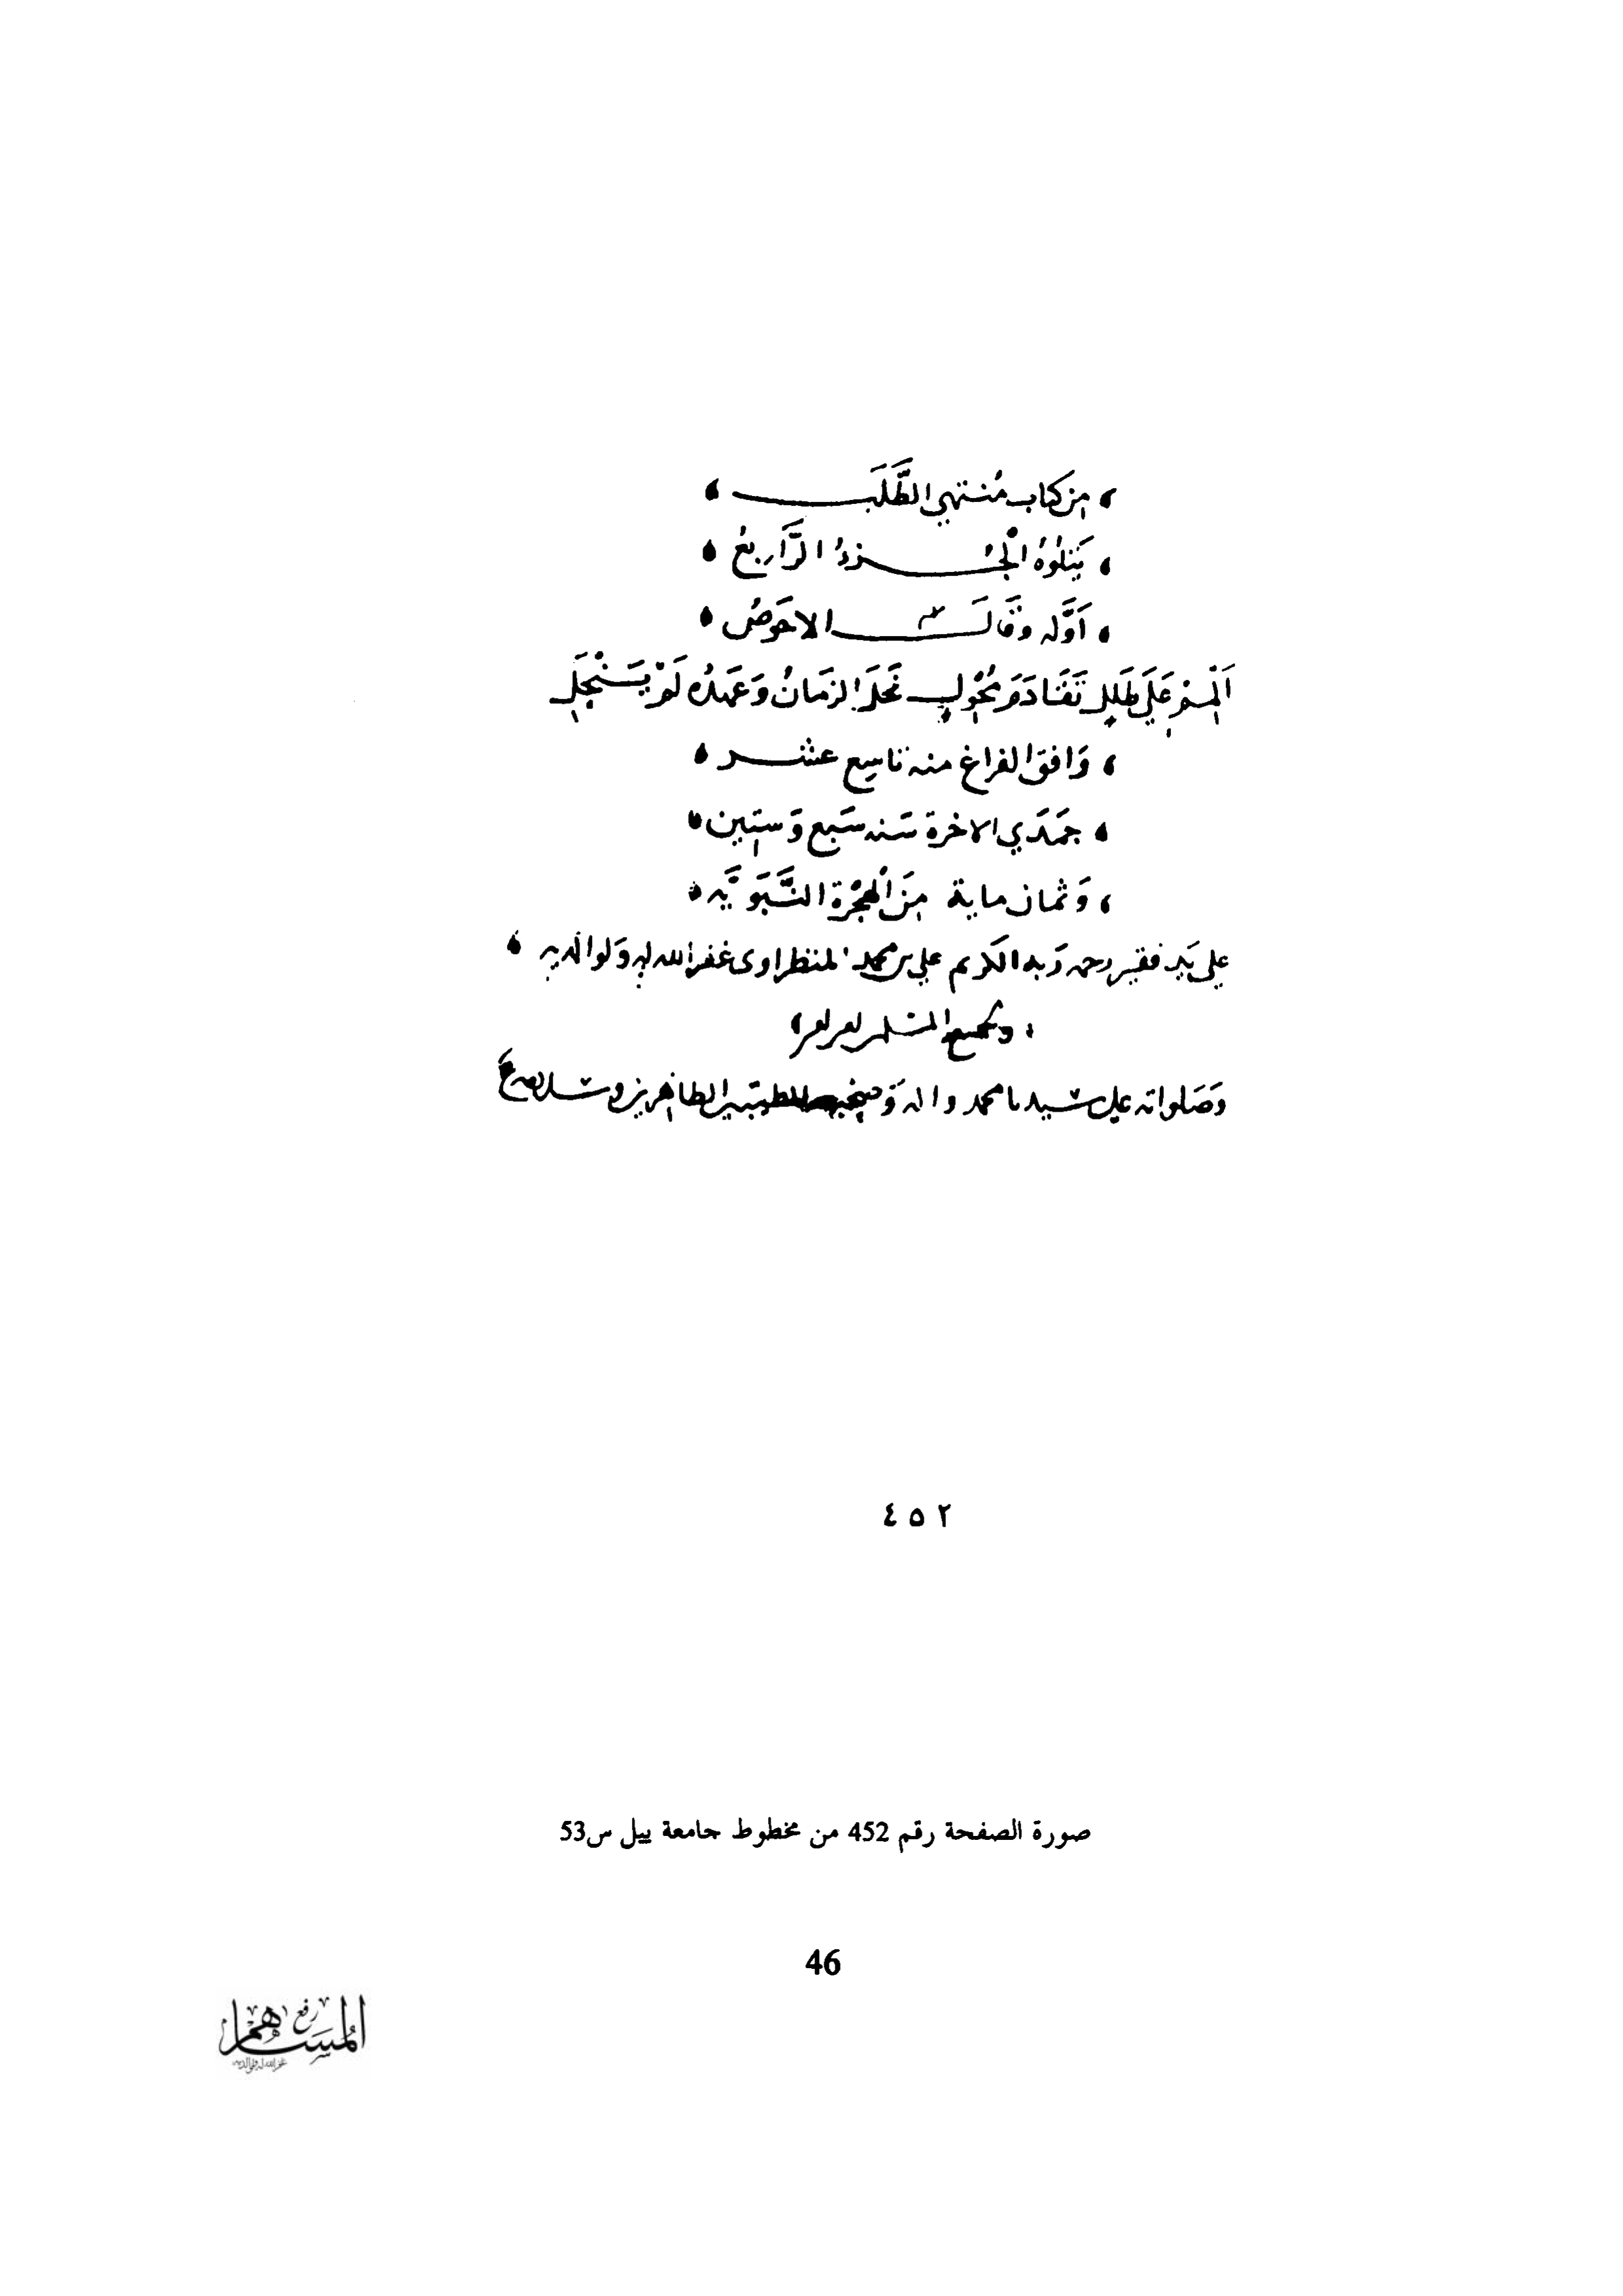 مِن كتاب مُنتهي الطَّلَب
يَتلُوهُ الْجُزءُ الرَّابعُ
اَوَّله وقَالَ الاحَوصُ
اَلْمِمْ عَلَى طَلَلٍ تَقَادَمَ مُحْوِلِ نَحَلَ الزمَانُ وَعَهدُه لَمْ يَنْحَلِ
وَافق الفراغ منه تاسِع عشر
جمَدَي الاخرة سَنه سَبع وَستين
وَثمان ماية مِنَ الْهِجْرَة النَّبَوَيَّه
علي يَد فقير رحمه رَبه الكريم علي بن محمد المنظراوى غفر الله له وَلوالديه
ولجميع المسلمين
وَصَلواته علي سيدنا محمد واله وَصحبه الطيبين الطاهرين وسلم
٤٥٢
صورة الصفحة رقم 452 من مخطوط جامعة ييل س53
46
رفع
المساهم
غفر الله له ولوالديه